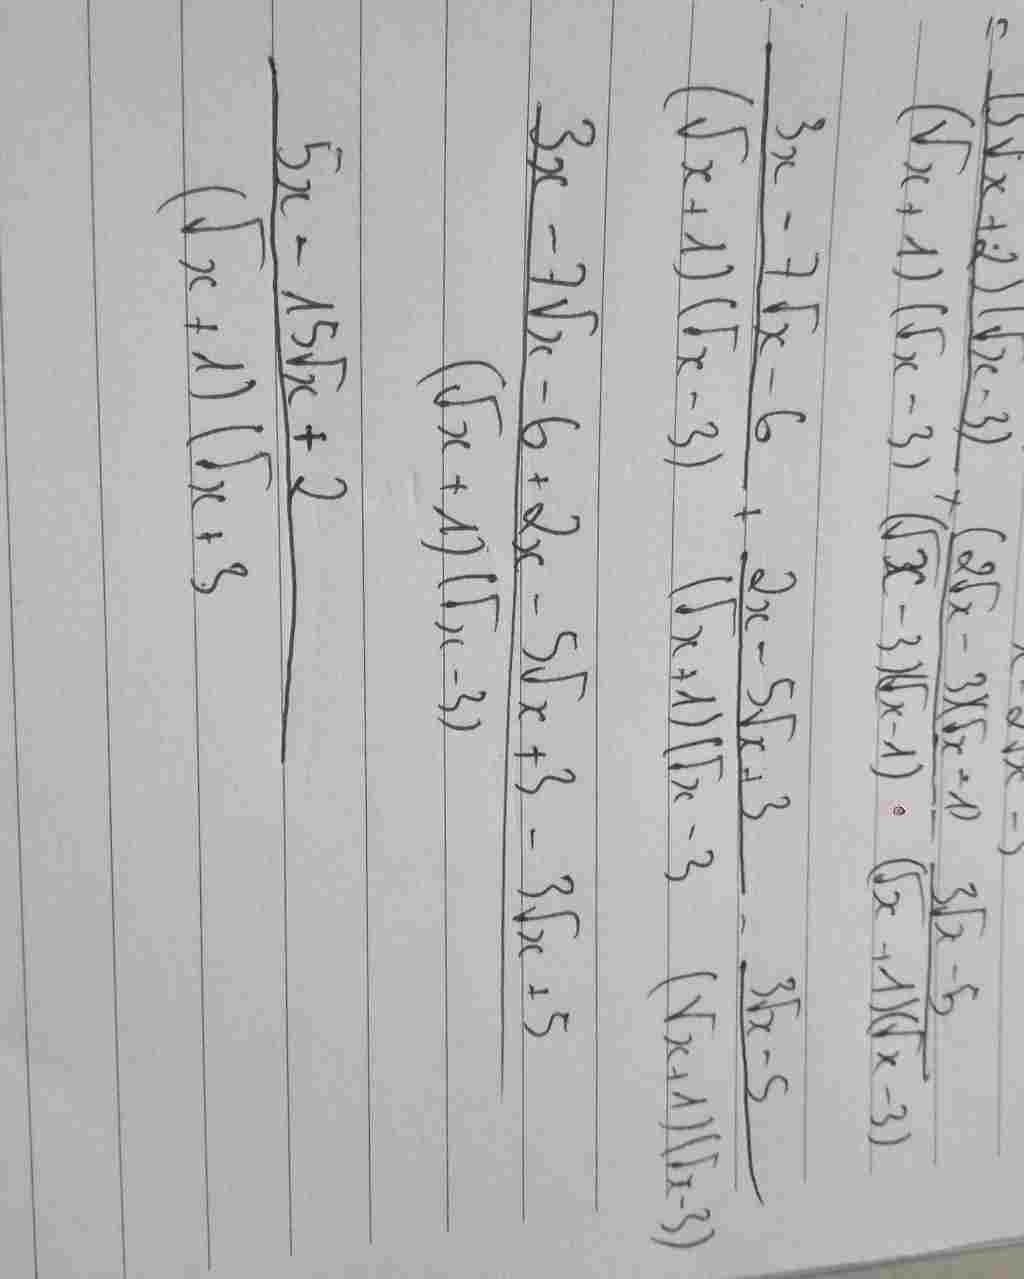 x - 2√x - 3
= (3√x + 2)(√x - 3) / (√x + 1)(√x - 3) + (2√x - 3)(√x - 1) / (√x - 3)(√x - 1) - 3√x - 5 / (√x + 1)(√x - 3)
3x - 7√x - 6 / (√x + 1)(√x - 3) + 2x - 5√x + 3 / (√x + 1)(√x - 3 - 3√x - 5 / (√x + 1)(√x - 3)
3x - 7√x - 6 + 2x - 5√x + 3 - 3√x + 5 / (√x + 1)(√x - 3)
5x - 15√x + 2 / (√x + 1)(√x + 3